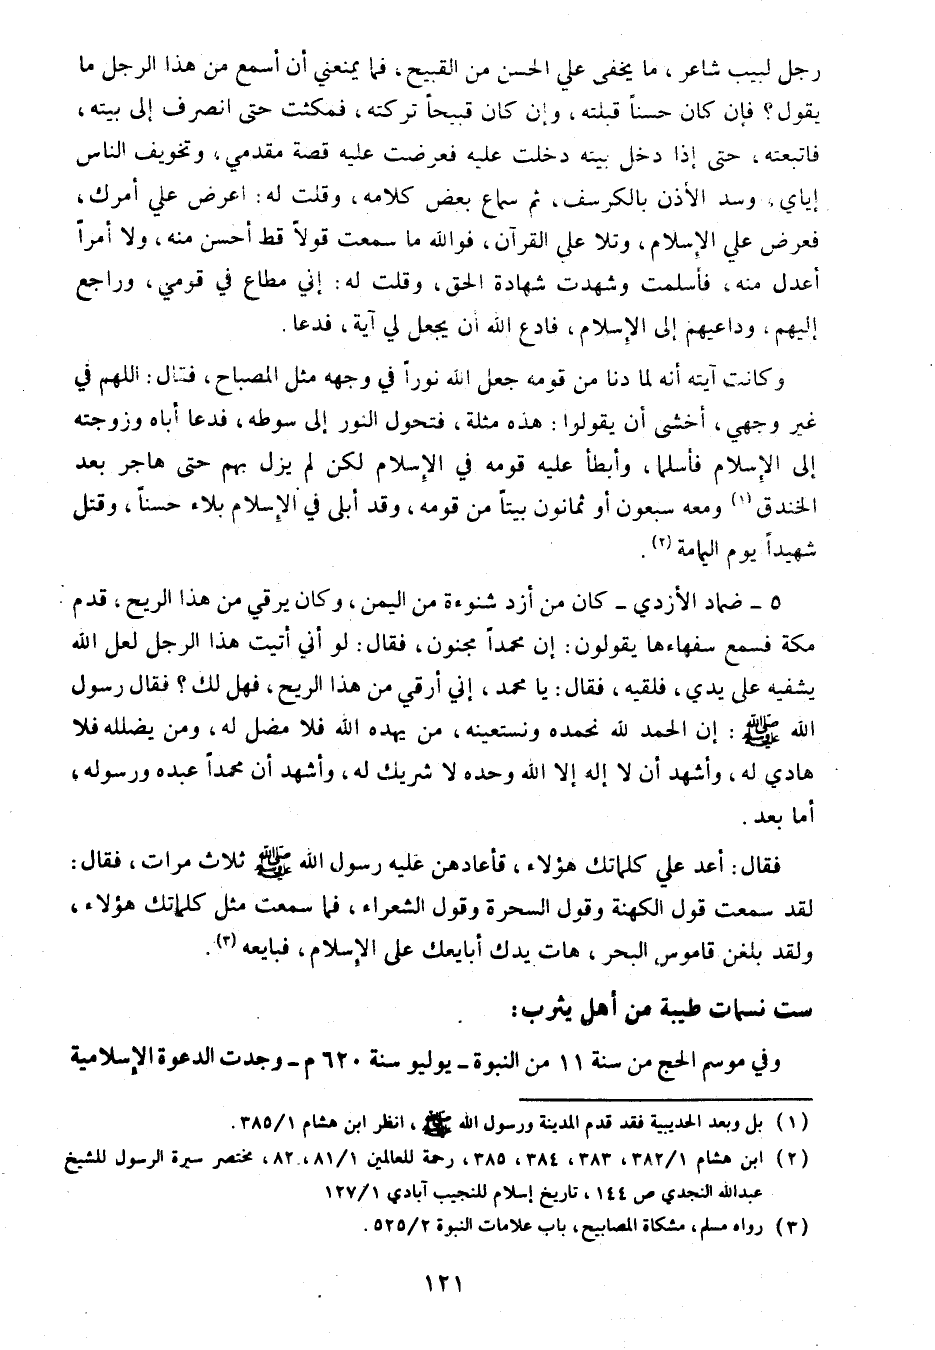 رجل لبيب شاعر، ما يخفى علي الحسن من القبيح، فما يمنعني أن أسمع من هذا الرجل ما
يقول؟ فإن كان حسناً قبلته، وإن كان قبيحاً تركته، فمكثت حتى انصرف إلى بيته،
فاتبعته، حتى إذا دخل بيته دخلت عليه فعرضت عليه قصة مقدمي، وتخويف الناس
إياي، وسد الأذن بالكرسف، ثم سماع بعض كلامه، وقلت له: اعرض علي أمرك،
فعرض علي الإسلام، وتلا علي القرآن، فوالله ما سمعت قولاً قط أحسن منه، ولا أمراً
أعدل منه، فأسلمت وشهدت شهادة الحق، وقلت له: إني مطاع في قومي، وراجع
إليهم، وداعيهم إلى الإسلام، فادع الله أن يجعل لي آية، فدعا.
وكانت آيته أنه لما دنا من قومه جعل الله نوراً في وجهه مثل المصباح، فقال: اللهم في
غير وجهي، أخشى أن يقولوا: هذه مثلة، فتحول النور إلى سوطه، فدعا أباه وزوجته
إلى الإسلام فأسلما، وأبطأ عليه قومه في الإسلام لكن لم يزل بهم حتى هاجر بعد
الخندق (١) ومعه سبعون أو ثمانون بيتاً من قومه، وقد أبلى في الإسلام بلاء حسناً، وقتل
شهيداً يوم اليمامة (٢).
٥ ـ ضماد الأزدي ـ كان من أزد شنوءة من اليمن، وكان يرقي من هذا الريح، قدم
مكة فسمع سفهاءها يقولون: إن محمداً مجنون، فقال: لو أني أتيت هذا الرجل لعل الله
يشفيه على يدي، فلقيه، فقال: يا محمد، إني أرقي من هذا الريح، فهل لك؟ فقال رسول
الله ﷺ: إن الحمد لله نحمده ونستعينه، من يهده الله فلا مضل له، ومن يضلله فلا
هادي له، وأشهد أن لا إله إلا الله وحده لا شريك له، وأشهد أن محمداً عبده ورسوله،
أما بعد.
فقال: أعد علي كلماتك هؤلاء، فأعادهن عليه رسول الله ﷺ ثلاث مرات، فقال:
لقد سمعت قول الكهنة وقول السحرة وقول الشعراء، فما سمعت مثل كلماتك هؤلاء،
ولقد بلغن قاموس البحر، هات يدك أبايعك على الإسلام، فبايعه (٣).
ست نسمات طيبة من أهل يثرب:
وفي موسم الحج من سنة ١١ من النبوة ـ يوليو سنة ٦٢٠ م ـ وجدت الدعوة الإسلامية
(١) بل وبعد الحديبية فقد قدم المدينة ورسول الله ﷺ، انظر ابن هشام ٣٨٥/١.
(٢) ابن هشام ٣٨٢/١، ٣٨٣، ٣٨٤، ٣٨٥، رحمة للعالمين ٨١/١، ٨٢، مختصر سيرة الرسول للشيخ
عبدالله النجدي ص ١٤٤، تاريخ إسلام للنجيب آبادي ١٢٧/١
(٣) رواه مسلم، مشكاة المصابيح، باب علامات النبوة ٥٢٥/٢.
١٢١